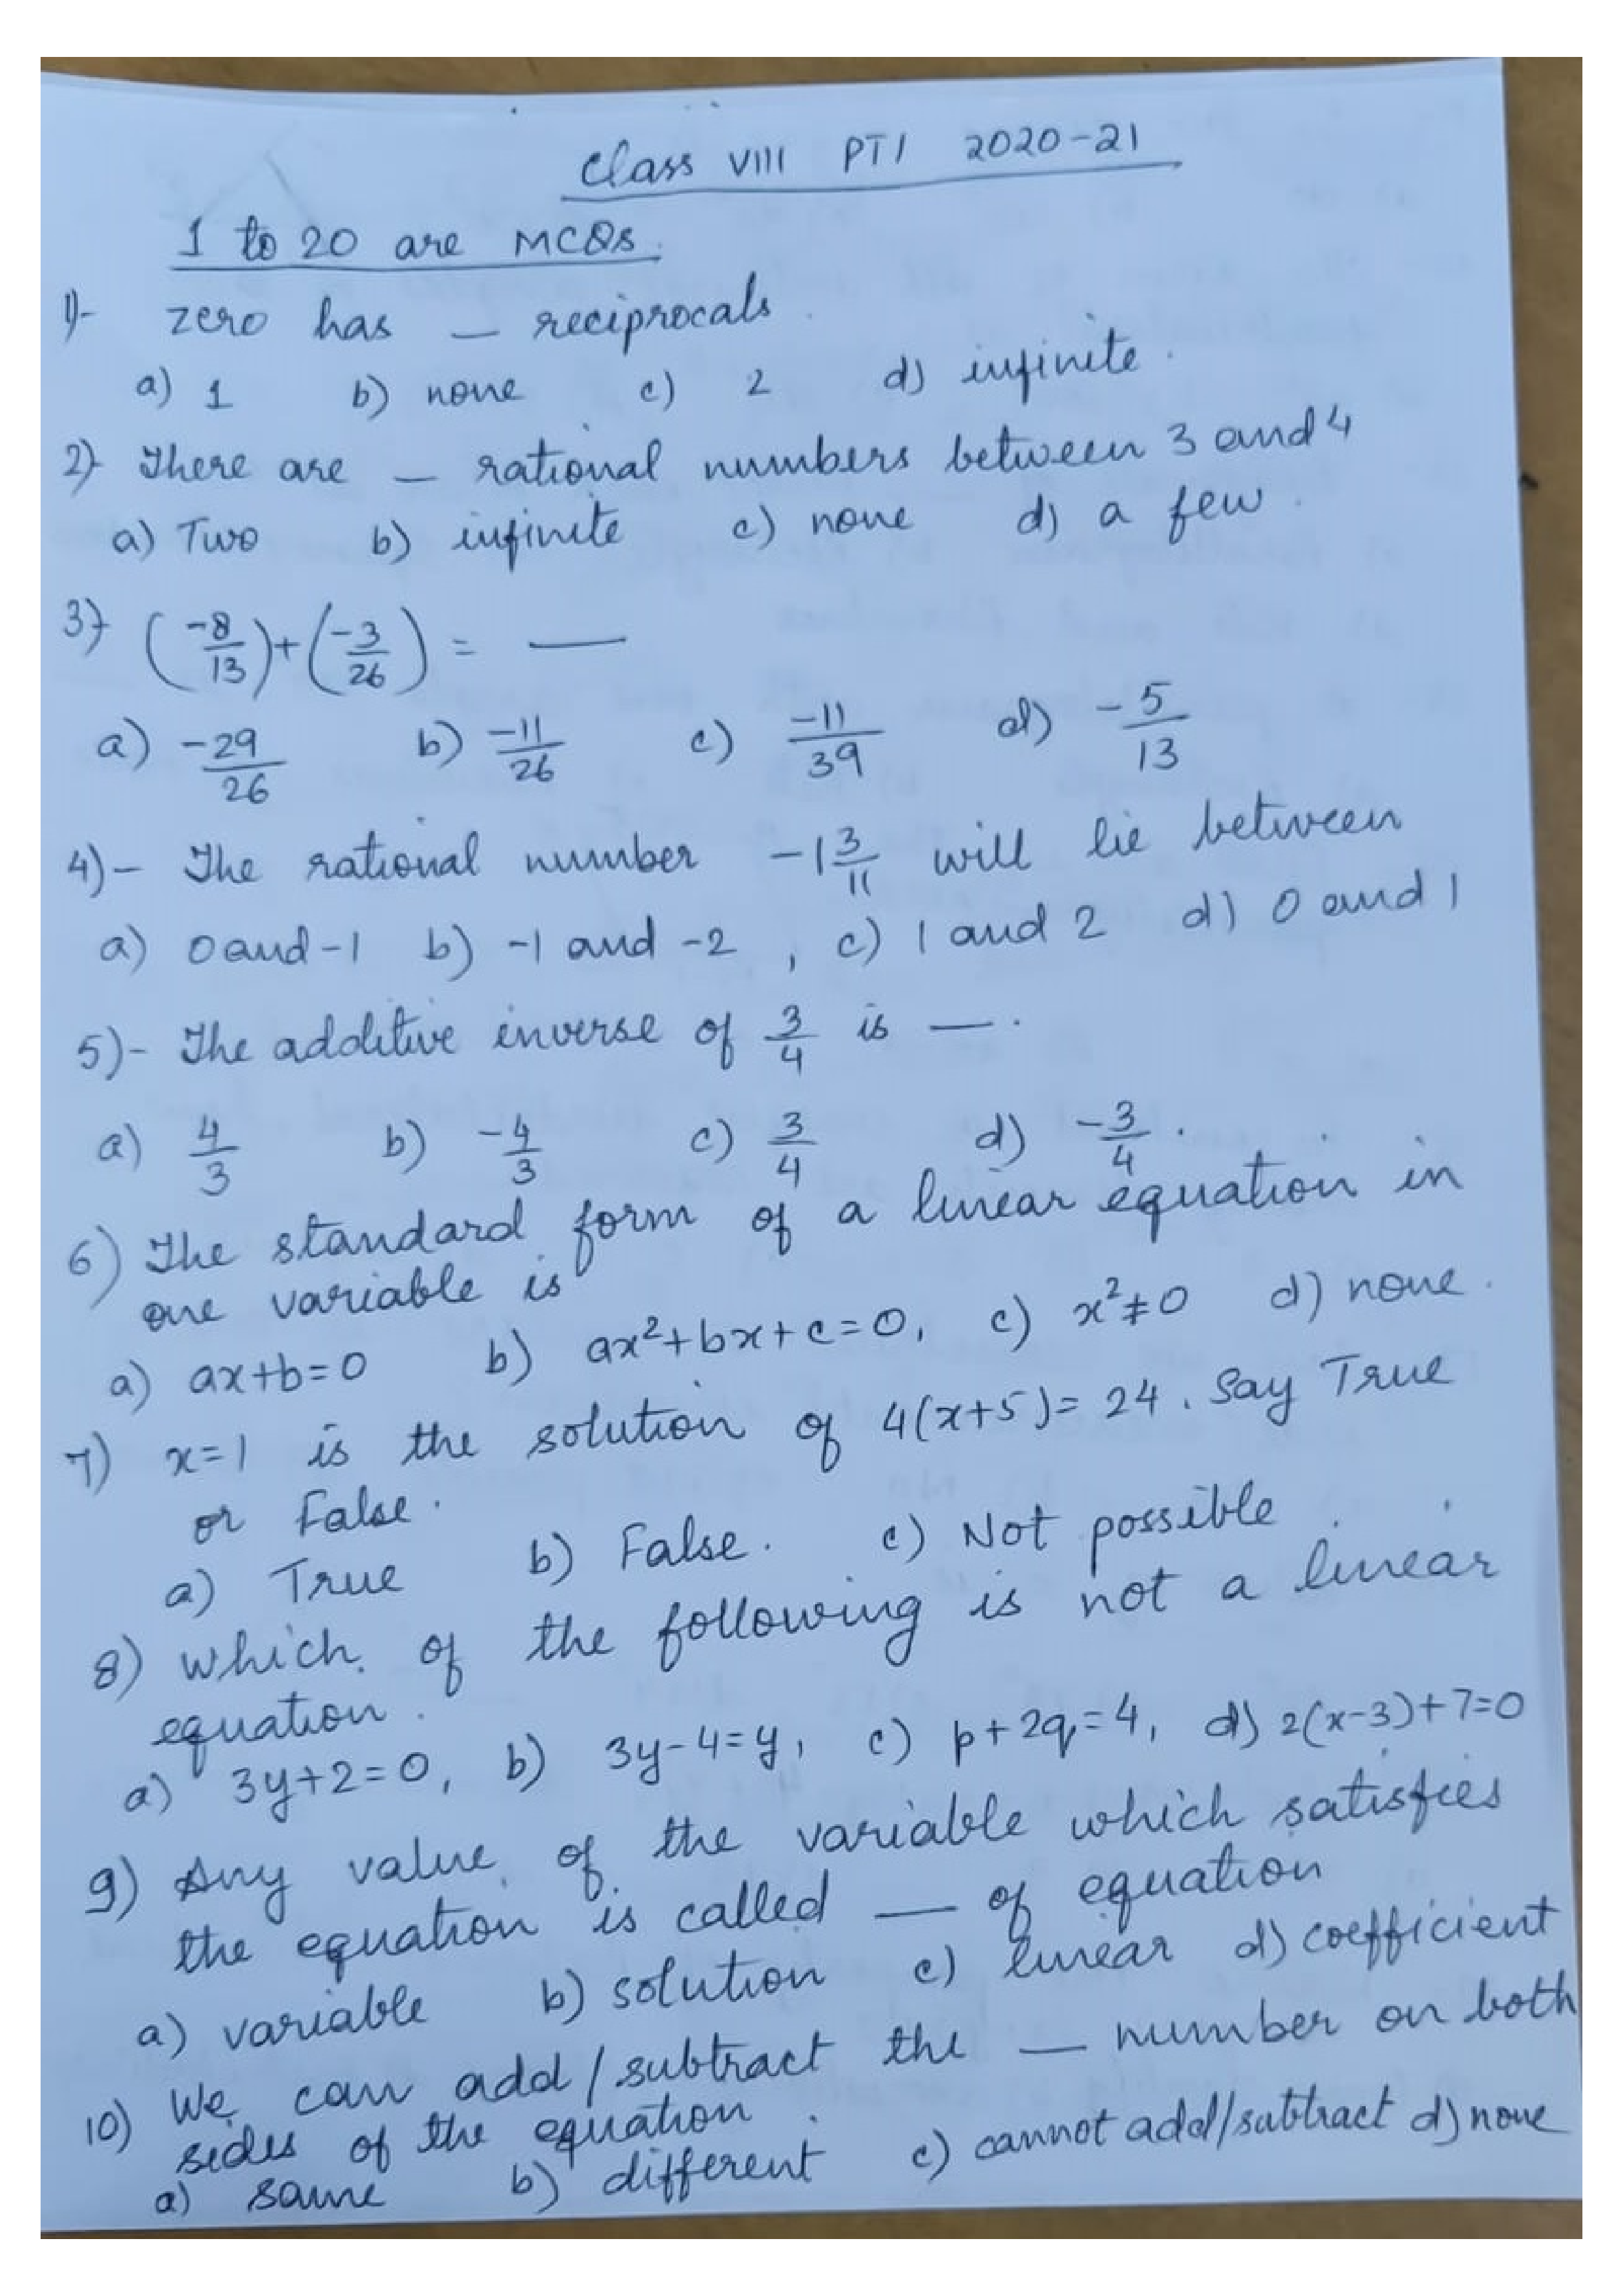 Class VIII PT1 2020-21
1 to 20 are MCQs.
1)- zero has — reciprocals.
a) 1 b) none c) 2 d) infinite.
2)- There are — rational numbers between 3 and 4
a) Two b) infinite c) none d) a few.
3)- (-8/13)+(-3/26) = —
a) -29/26 b) -11/26 c) -11/39 d) -5/13
4)- The rational number -1 3/11 will lie between
a) 0 and -1 b) -1 and -2, c) 1 and 2 d) 0 and 1
5)- The additive inverse of 3/4 is —.
a) 4/3 b) -4/3 c) 3/4 d) -3/4.
6) The standard form of a linear equation in
one variable is
a) ax+b=0 b) ax²+bx+c=0, c) x²≠0 d) none.
7) x=1 is the solution of 4(x+5)=24. Say True
or False.
a) True b) False. c) Not possible.
8) which of the following is not a linear
equation.
a) 3y+2=0, b) 3y-4=y, c) p+2q=4, d) 2(x-3)+7=0
9) Any value of the variable which satisfies
the equation is called — of equation
a) variable b) solution c) linear d) coefficient
10) We can add/subtract the — number on both
sides of the equation.
a) same b) different c) cannot add/subtract d) none